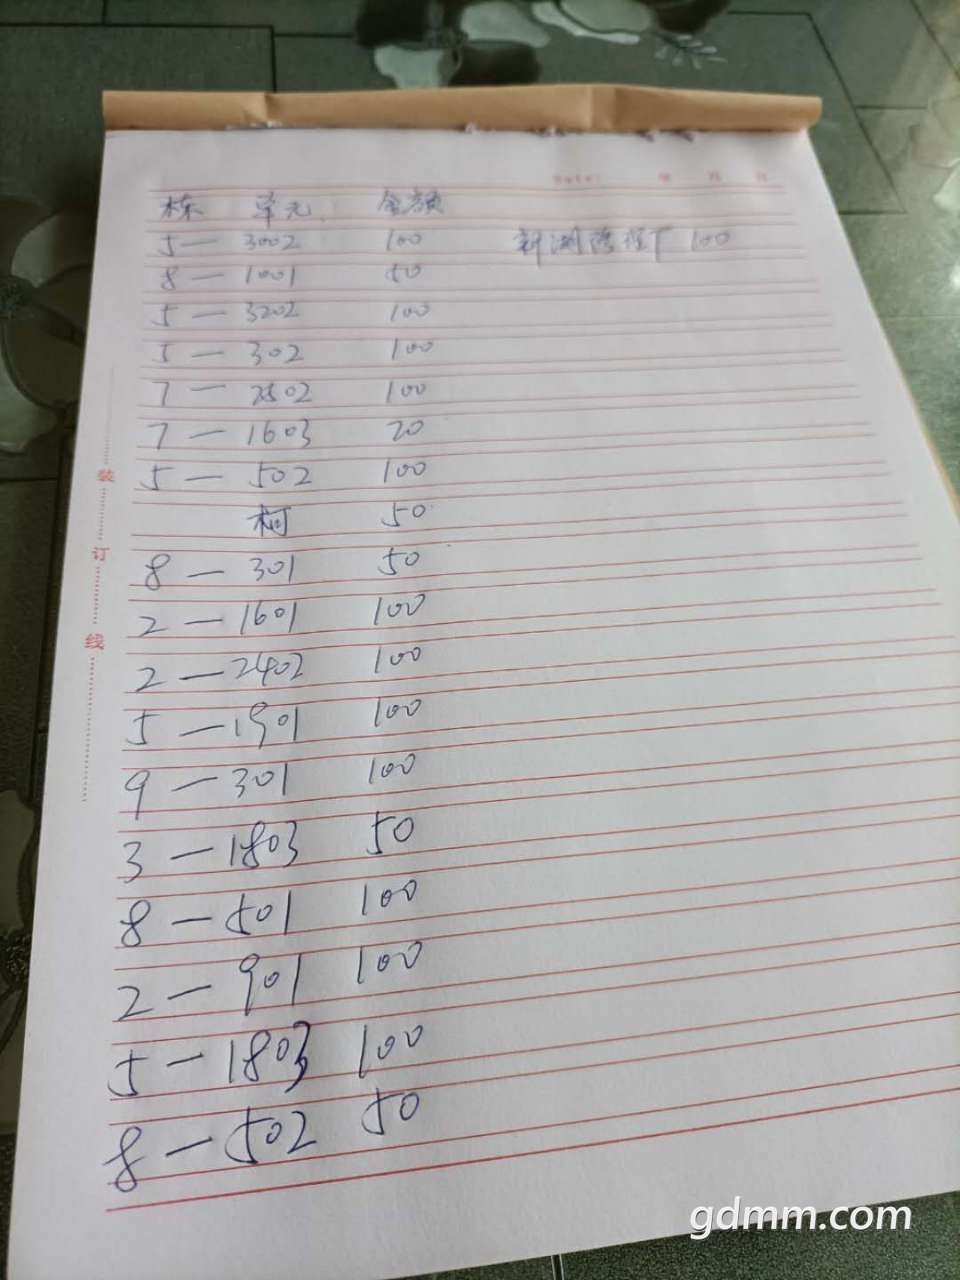 栋 单元 金额
5 — 3002 100 新湖
100
8 — 1001 50
5 — 3202 100
5 — 302 100
7 — 2802 100
7 — 1603 20
5 — 502 100
柯 50
8 — 301 50
2 — 1601 100
2 — 2402 100
5 — 1901 100
9 — 301 100
3 — 1803 50
8 — 501 100
2 — 901 100
5 — 1803 100
8 — 502 50
装
订
线
gdmm.com